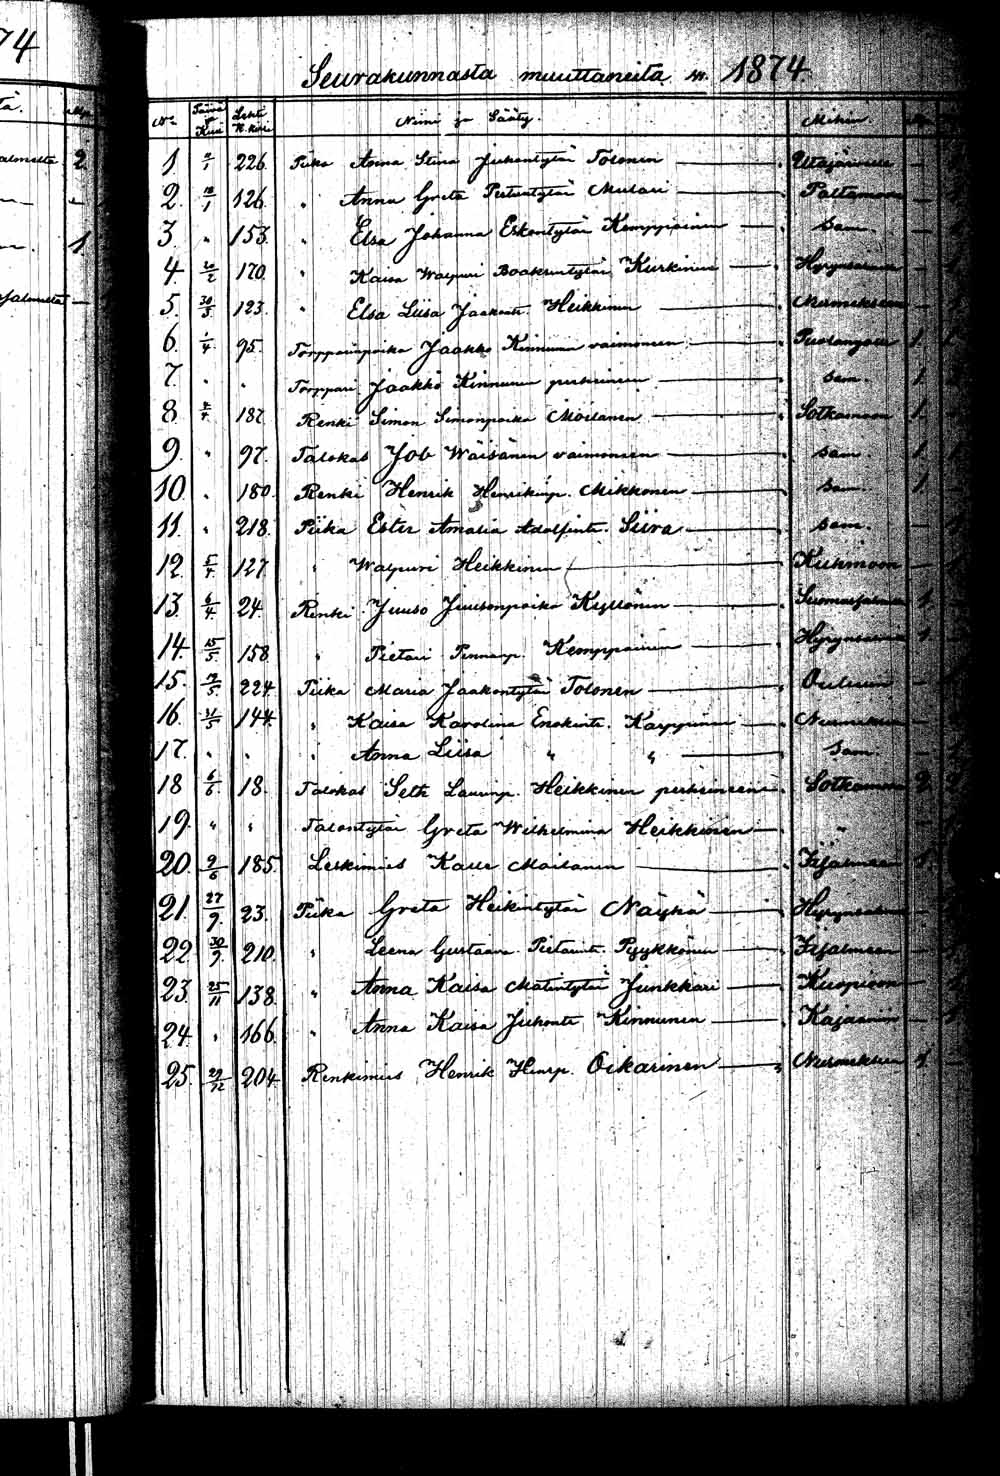 74
Seurakunnasta muuttaneita v. 1874
No Päivä ja Kuu Lehti K.kirj. Nimi ja Sääty. Mihin. Mp.
1 226. Piika Anna Stina Juhontytär Tolonen Utajärvelle
2. 126. " Anna Greta Pertuntytär Mulari Paltamoon
3 " 153. " Elsa Johanna Eskontytär Kemppainen Sam.
4. 170. " Kaisa Walpuri Kurkinen Hyrynsalmelle
5. 30/3 123. " Elsa Liisa Jaakont. Heikkinen Nurmekseen
6. 1/4 95. Torpparinpoika Jaakko Kinnunen vaimoneen Puolangolle 1.
7. " " Torppari Jaakko Kinnunen perheineen sam. 1.
8. 4/4 187. Renki Simon Simonpoika Moilanen Sotkamoon 1.
9. " 97. Talokas Job Wäisänen vaimoneen sam. 1.
10. " 180. Renki Henrik Henrikinp. Mikkonen sam. 1.
11. " 218. Piika Ester Amalia Adolfint. Siira sam.
12. 5/4 127. " Walpuri Heikkinen Kuhmoon
13. 6/4 24. Renki Juuso Juusonpoika Kyllönen Suomussalmelle 1.
14. 15/5 158. " Pietari Kemppainen Hyrynsalmelle 1.
15. 224. Piika Maria Jaakontytär Tolonen Ouluun
16. 21/5 144. " Kaisa Karolina Karppinen Nurmekseen
17. " " " Anna Liisa " " Sam.
18 6/6 18. Talokas Seth Laurinp. Heikkinen perheineen Sotkamoon 2.
19. " " Talontytär Greta Wilhelmina Heikkinen "
20. 9/6 185. Leskimies Kalle Moilanen Iisalmeen 1.
21. 27/9 23. Piika Greta Heikintytär Näykä Hyrynsalmelle
22. 30/9 210. " Leena Gustaava Pietarint. Pyykkönen Iisalmeen
23. 25/11 138. " Anna Kaisa Matintytär Junkkari Kuopioon
24. " 166. " Anna Kaisa Juhont. Kinnunen Kajaaniin
25. 29/12 204. Renkimies Henrik Oikarinen Nurmekseen 1.